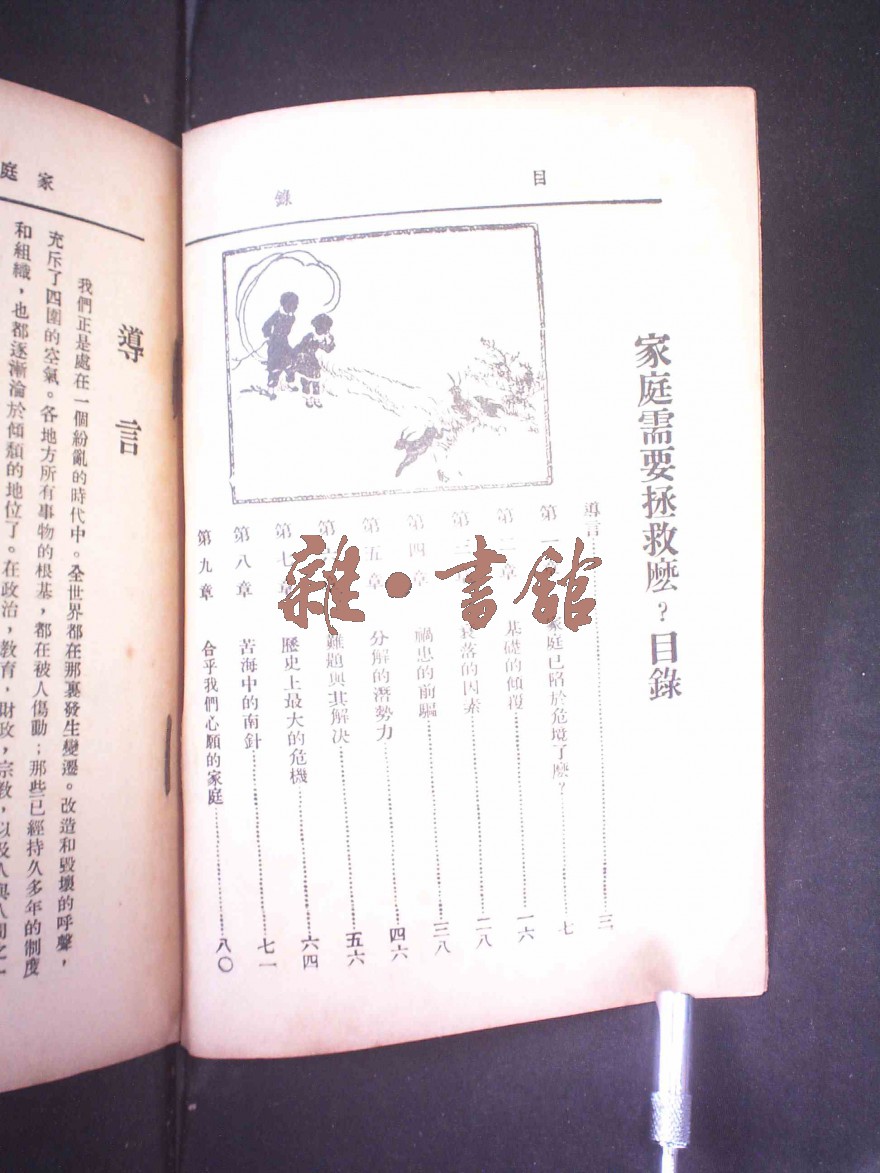 目錄
家庭需要拯救麼？目錄
導言……三
第一章 家庭已陷於危境了麼？……七
第二章 基礎的傾覆……一六
第三章 衰落的因素……二八
第四章 禍患的前驅……三八
第五章 分解的潛勢力……四六
第六章 難題與其解決……五六
第七章 歷史上最大的危機……六四
第八章 苦海中的南針……七一
第九章 合乎我們心願的家庭……八〇
雜·書館
家庭
導言
我們正是處在一個紛亂的時代中。全世界都在那裏發生變遷。改造和毀壞的呼聲，
充斥了四圍的空氣。各地方所有事物的根基，都在被人傷動；那些已經持久多年的制度
和組織，也都逐漸淪於傾頹的地位了。在政治，教育，財政，宗教，以及人與人間之一